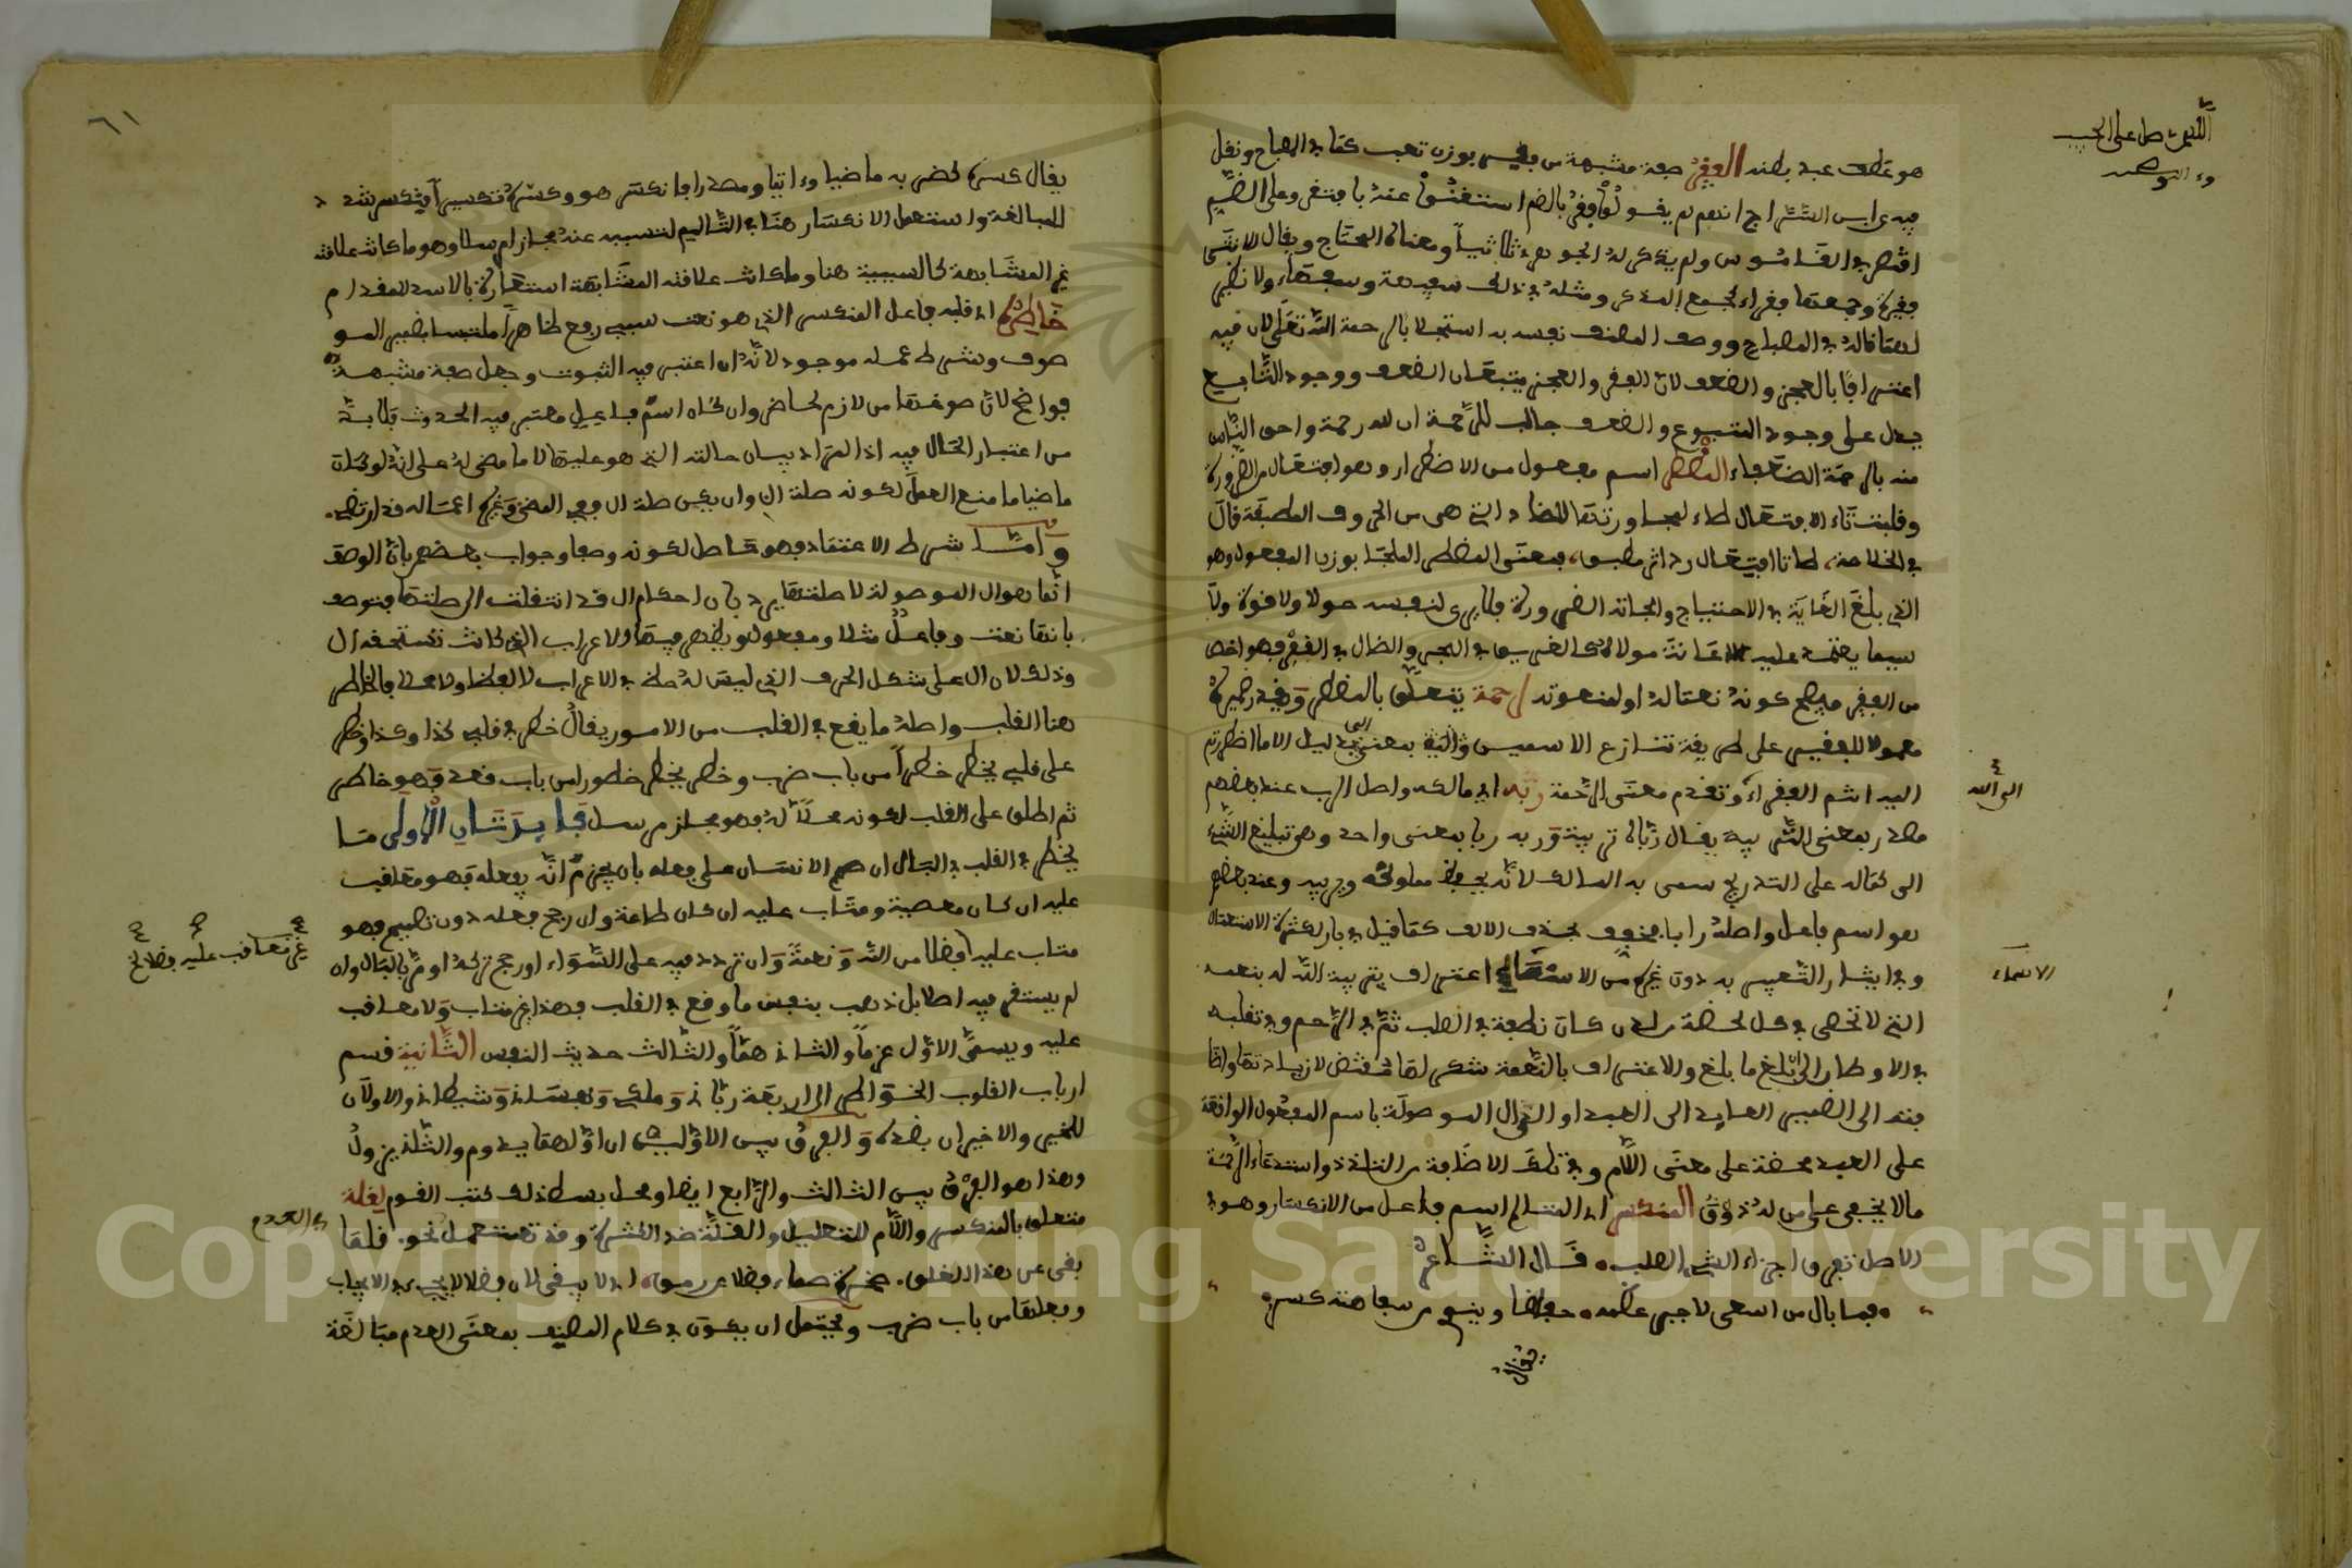 اللهم صل على الحبيب
وءاله وصحبه
هو عطف عبد بطنه الفقير صفة مشبهة من فقير بوزن تعب كما في المصباح ونقل
فيه عن ابن السراج انهم لم يقولوا فقر بالضم استغنوا عنه بافتقر وعلى الضم
اقتصر في القاموس ولم يذكر له الجوهري ثلاثيا ومعناه المحتاج ويقال للانثى
فقيرة وجمعها فقراء كجمع المذكر ومثله في ذلك سفيهة وسفهاء ولا نظير
لهما قاله في المصباح ووصف المصنف نفسه به استجلابا لرحمة الله تعلى لان فيه
اعترافا بالعجز والضعف لان الفقر والعجز يتبعان الضعف ووجود التابع
يدل على وجود المتبوع والضعف جالب للرحمة ان لله رحمة واحق الناس
منه بالرحمة الضعفاء المضطر اسم مفعول من الاضطرار وهو افتعال من الضرورة
وقلبت تاء الافتعال طاء لمجاورتها للضاد التي هي من الحروف المطبقة قال
في الخلاصة طا تا افتعال رد اثر مطبق فمعنى المضطر الملجا بوزن المفعول وهو
الذي بلغ الغاية في الاحتياج والجاته الضرورة فلا يرى لنفسه حولا ولا قوة ولا
سببا يعتمد عليه اغاثة مولاه كالغريق في البحر والضال في القفر فهو اخص
من الفقير فيصح كونه نعتا له او لمنعوته لرحمة يتعلق بالمضطر ويقدر ضميره
معمولا للفقير على طريقة تنازع الاسمين واللام بمعنى الى بدليل الا ما اضطررتم
اليه انتم الفقراء وتقدم معنى الرحمة ربه اي مالكه واصل الرب عند بعضهم
الى الله
مصدر بمعنى التربية يقال رباه تربية وربه ربا بمعنى واحد وهي تبليغ الشيء
الى كماله على التدريج سمي به المالك لانه يحفظ مملوكه ويربيه وعند بعضهم
هو اسم فاعل واصله رابا فخفف بحذف الالف كما قيل في بار لكثرة الاستعمال
وفي ايثار التعبير به دون غيره من الاسماء اعتراف بتربية الله له بنعمه
الاسماء
التي لا تحصى في كل لحظة من لدن كان نطفة في الصلب ثم في الرحم وفي تقلبه
في الاوطار الى ان بلغ ما بلغ والاعتراف بالنعمة شكر لها مقتض لازديادتها واضا
فته الى الضمير العايد الى العبد او الى ال الموصولة باسم المفعول الواقعة
على العبد محضة على معنى اللام وفي تلك الاضافة من التلذذ واستدعاء الرحمة
ما لا يخفى على من له ذوق المنكسر اي المتالم اسم فاعل من الانكسار وهو في
الاصل تفرق اجزاء الشيء الصلب قال الشاعر
فما بال من اسعى لاجبر عظمه حفاظا وينوي من سفاهته كسري
يقال
٦١
يقال كسره كضربه ماضيا وءاتيا ومصدرا فانكسر هو وكسره تكسيرا فتكسر شدد
للمبالغة واستعمل الانكسار هنا في التاليم لتسببه عنه مجازا مرسلا وهو ما كانت علاقته
غير المشابهة كالسببية هنا وما كانت علاقته المشابهة استعارة كالاسد للمقدام
خاطره اي قلبه فاعل المنكسر الذي هو نعت سببي رفع ظاهرا ملتبسا بضمير المو
صوف وشرط عمله موجود لانه ان اعتبر فيه الثبوت وجعل صفة مشبهة
فواضح لان صوغها من لازم لحاضر وان كان اسم فاعل معتبر فيه الحدوث فلا بد
من اعتبار الحال فيه اذ المراد بيان حالته التي هو عليها لا ما مضى له على انه لو كان
ماضيا ما منع العمل لكونه صلة ال وان يكن صلة ال ففي المضي وغيره اعماله قد ارتضي
واما شرط الاعتماد فهو حاصل لكونه وصفا وجواب بعضهم بان الوصف
انما هو ال الموصولة لا صلتها يرد بان احكام ال قد انتقلت الى صلتها فتوصف
بانها نعت وفاعل مثلا ومفعول ويظهر فيها الاعراب الذي كانت تستحقه ال
وذلك لان ال على شكل الحرف الذي ليس له حظ في الاعراب لا لفظا ولا محلا والخاطر
هنا القلب واصله ما يقع في القلب من الامور يقال خطر في قلبي كذا وكذا وخطر
على قلبي يخطر خطرا من باب ضرب وخطر يخطر خطورا من باب قعد وهو خاطر
ثم اطلق على القلب لكونه محلا له فهو مجاز مرسل فايدتان الاولى ما
يخطر في القلب في البال ان صمم الانسان على فعله بان يجزم انه يفعله فهو معاقب
عليه ان كان معصية ومثاب عليه ان كان طاعة وان رجح فعله دون تصميم فهو
غير معاقب عليه فضلا الخ
مثاب عليه فضلا من الله ونعمة وان تردد فيه على السواء او رجح تركه او مر بالبال وان
لم يستقر فيه اصلا بل ذهب بنفس ما وقع في القلب فهذا غير مثاب ولا معاقب
عليه ويسمى الاول عزما والثاني هما والثالث حديث النفس الثانية قسم
ارباب القلوب الخواطر الى اربعة رباني وملكي ونفساني وشيطاني والاولان
للخير والاخيران بضده والفرق بين الاولين ان اولهما يدوم والثاني يزول
وهذا هو الفرق بين الثالث والرابع ايضا ومحل بسط ذلك كتب القوم لقلة
متعلق بالمنكسر واللام للتعليل والقلة ضد الكثرة وقد تستعمل نحو قلما
في العدم
بقي عن هذا القلق صخرة صماء فضلا عن رمق اي لا يبقى لان فضلا لا يجيء في الايجاب
وفعلها من باب ضرب ويحتمل ان يكون في كلام المصنف بمعنى العدم مبالغة
Copyright © King Saud University